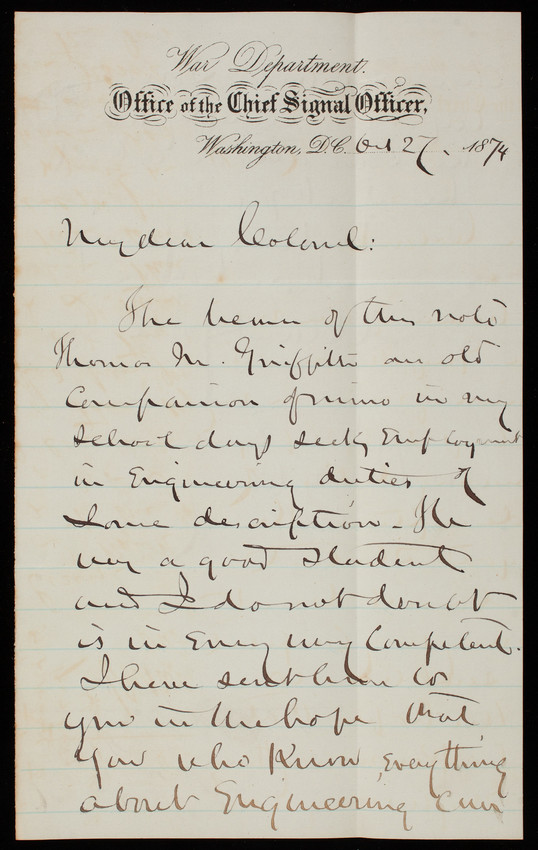 War Department.
Office of the Chief Signal Officer,
Washington, D.C. Oct 27. 1874
My dear Colonel:
The bearer of this note
Thomas M. Griffith an old
Companion of mine in my
school days seeks Employment
in Engineering duties of
Some description - He
was a good student
and I do not doubt
is in Every way Competent.
I have sent him to
you in the hope that
you who Know, Everything
about Engineering Can